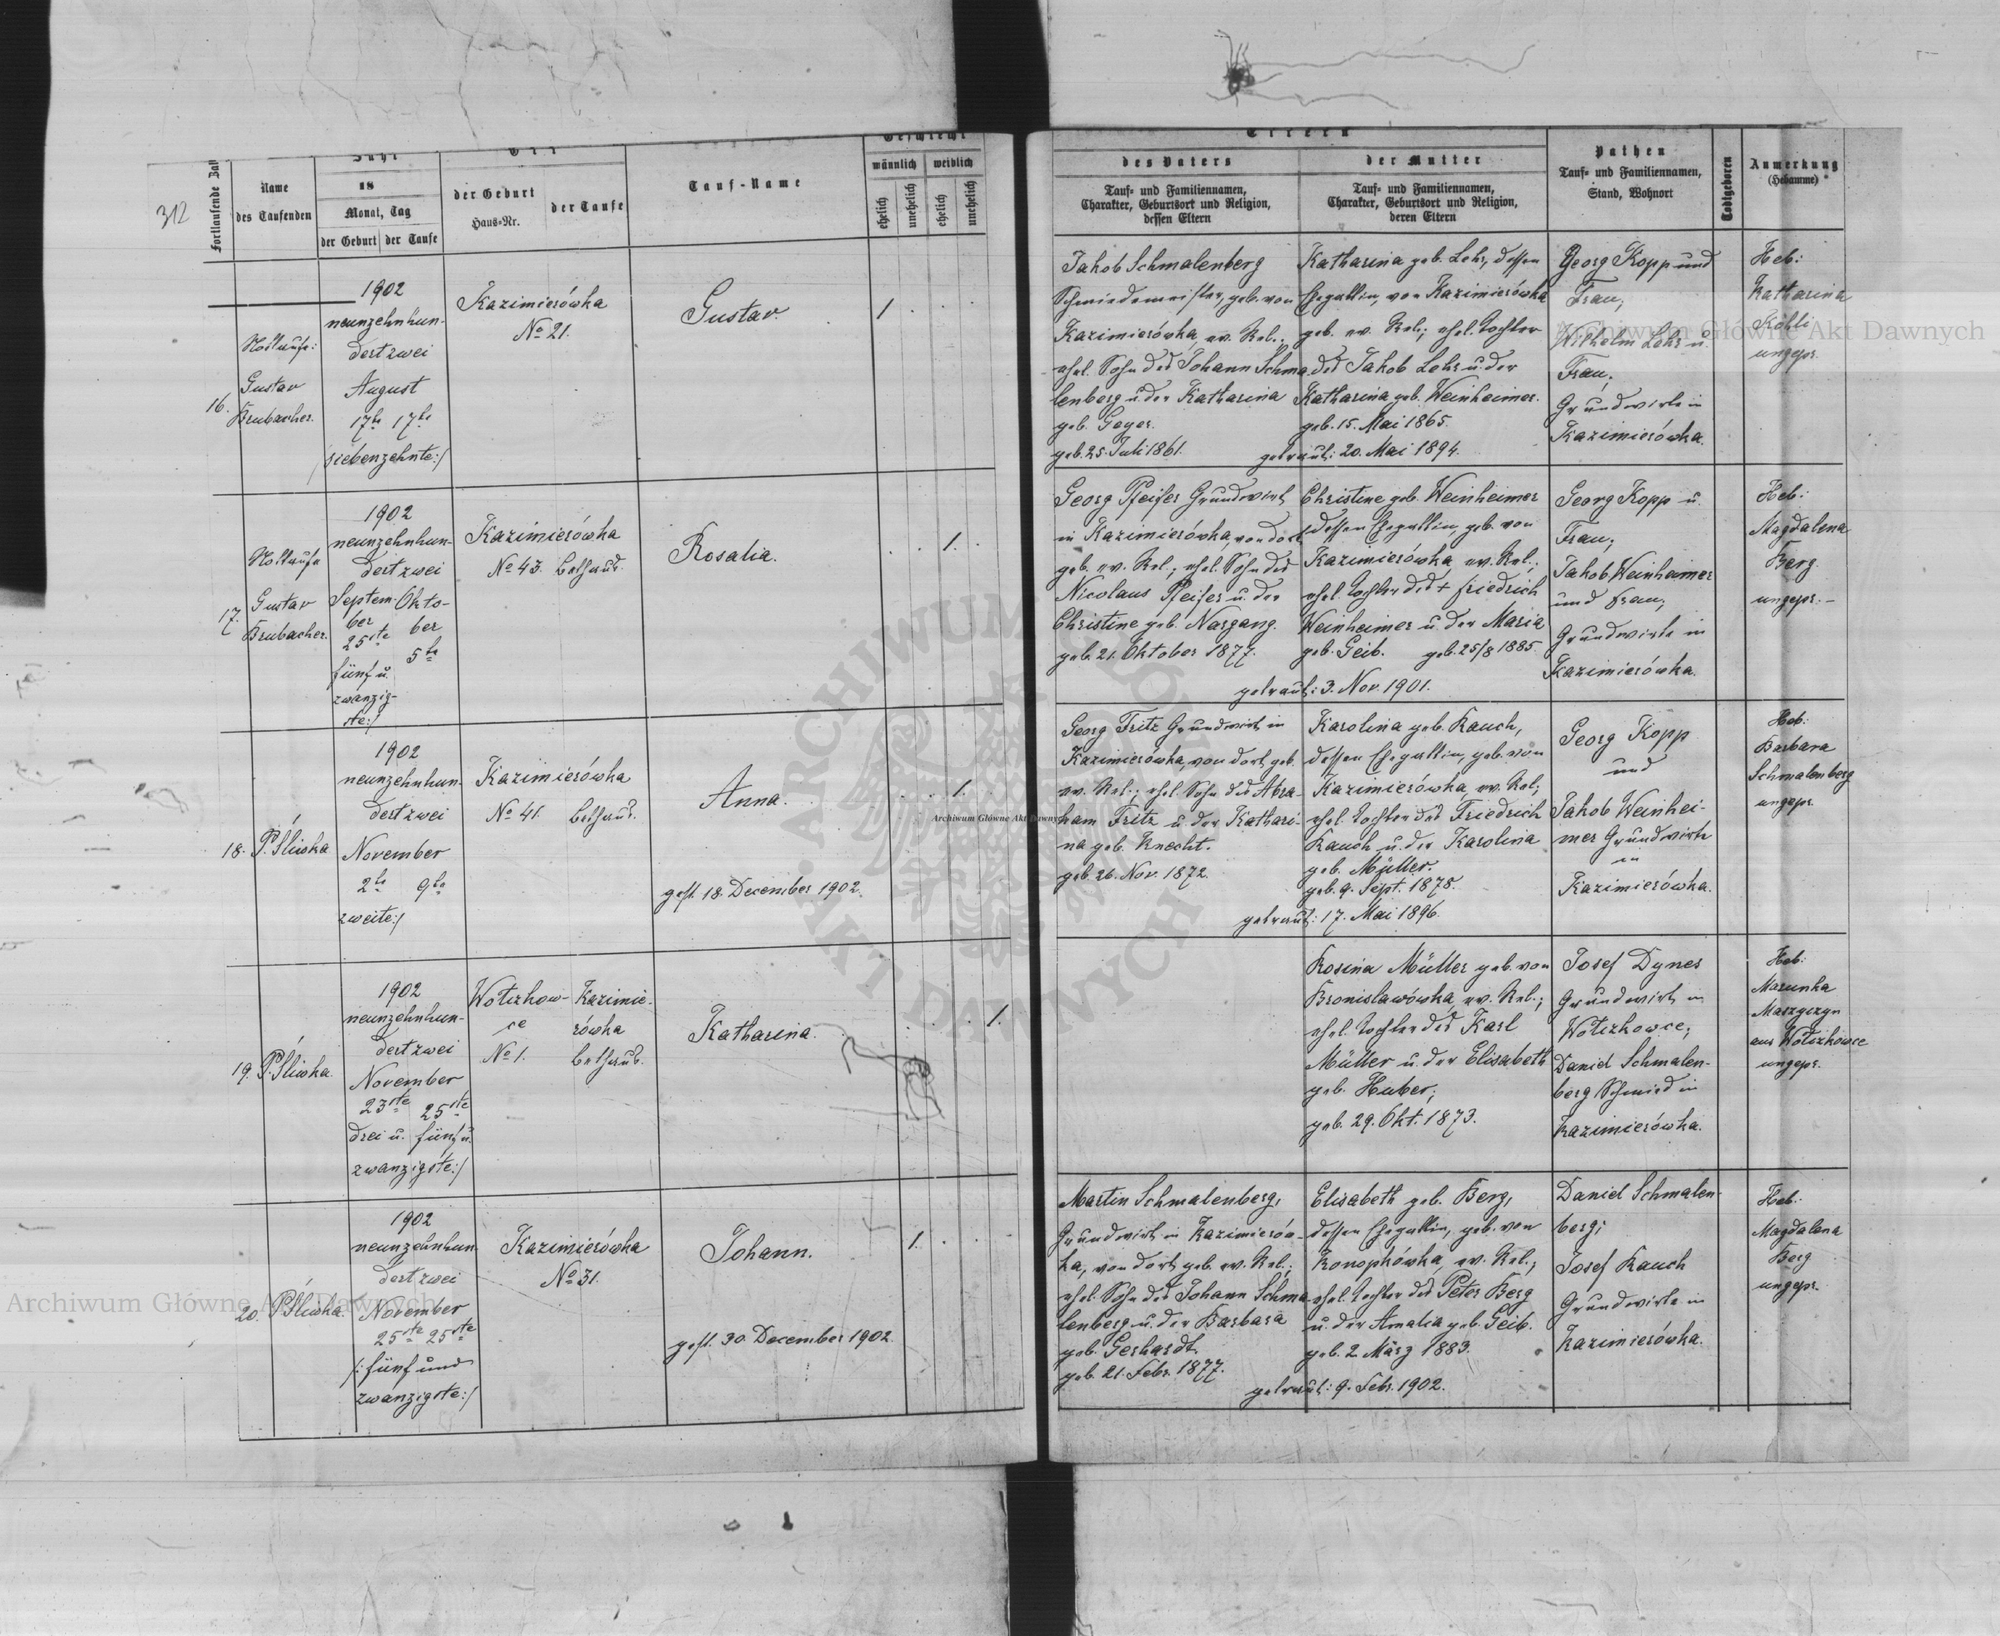 312
Fortlaufende Zahl
Name
des Taufenden
Jahr
18
Monat, Tag
der Geburt
der Taufe
Ort
der Geburt
Haus-Nr.
der Taufe
Tauf-Name
Geschlecht
männlich
weiblich
ehelich
unehelich
ehelich
unehelich
Eltern
des Vaters
Tauf- und Familiennamen,
Charakter, Geburtsort und Religion,
dessen Eltern
der Mutter
Tauf- und Familiennamen,
Charakter, Geburtsort und Religion,
deren Eltern
Pathen
Tauf- und Familiennamen,
Stand, Wohnort
Todtgeboren
Anmerkung
(Hebamme)
16.
Nottaufe:
Gustav
Brubacher.
1902
neunzehnhun-
dertzwei
August
17te 17te
siebenzehnte:/
Kazimierówka
No 21.
Gustav.
1
Jakob Schmalenberg
Schmiedemeister, geb. von
Kazimierówka, ev. Rel.;
ehel. Sohn des Johann Schma-
lenberg u. der Katharina
geb. Geyer.
geb. 25. Juli 1861.
Katharina geb. Lehr, dessen
Ehegattin, von Kazimierówka
geb. ev. Rel.; ehel. Tochter
des Jakob Lehr u. der
Katharina geb. Weinheimer.
geb. 15. Mai 1865.
getraut: 20. Mai 1894.
Georg Kopp und
Frau;
Wilhelm Lehr u.
Frau,
Grundwirte in
Kazimierówka.
Heb:
Katharina
Köhli
ungepr.
17.
Nottaufe
Gustav
Brubacher.
1902
neunzehnhun-
dertzwei
Septem- Okto-
ber ber
25ste 5te
fünf u.
zwanzig-
ste:/
Kazimierówka
No 43. Bethaus.
Rosalia.
1.
Georg Pfeifer Grundwirt
in Kazimierówka, von dort
geb. ev. Rel.; ehel. Sohn des
Nicolaus Pfeifer u. der
Christine geb. Nargang.
geb. 21. Oktober 1877.
Christine geb. Weinheimer
dessen Ehegattin, geb. von
Kazimierówka, ev. Rel.;
ehel. Tochter des + Friedrich
Weinheimer u. der Maria
geb. Geib. geb. 25/8 1885.
getraut: 3. Nov. 1901.
Georg Kopp u.
Frau;
Jakob Weinheimer
und Frau;
Grundwirte in
Kazimierówka.
Heb:
Magdalena
Berg
ungepr.-
18.
P. Śliwka
1902
neunzehnhun-
dertzwei
November
2te 9te
zweite:/
Kazimierówka
No 41. Bethaus.
Anna.
gest. 18. December 1902.
1.
Georg Fritz Grundwirt in
Kazimierówka, von dort geb.
ev. Rel.; ehel. Sohn des Abra-
ham Fritz u. der Kathari-
na geb. Knecht.
geb. 26. Nov. 1872.
Karolina geb. Rauch,
dessen Ehegattin, geb. von
Kazimierówka, ev. Rel.;
ehel. Tochter des Friedrich
Rauch u. der Karolina
geb. Müller.
geb. 9. Sept. 1878.
getraut: 17. Mai 1896.
Georg Kopp
und
Jakob Weinhei-
mer Grundwirte
in
Kazimierówka.
Heb:
Barbara
Schmalenberg
ungepr.
19.
P. Śliwka.
1902
neunzehnhun-
dertzwei
November
23ste 25ste
drei u. fünf u.
zwanzigste:/
Wolizkow-
ce
No 1.
Kazimie-
rówka
Bethaus.
Katharina.
1.
Rosina Müller geb. von
Bronislawówka, ev. Rel.;
ehel. Tochter des Karl
Müller u. der Elisabeth
geb. Huber;
geb. 29. Okt. 1873.
Josef Dynes
Grundwirt in
Wolizkowce;
Daniel Schmalen-
berg Schmied in
Kazimierówka.
Heb:
Marunka
aus Wolizkowce
ungepr.
20.
P. Śliwka.
1902
neunzehnhun-
dertzwei
November
25ste 25ste
/:fünf und
zwanzigste:/
Kazimierówka
No 31.
Johann.
gest. 30. December 1902.
1.
Martin Schmalenberg,
Grundwirt in Kazimierów-
ka, von dort geb. ev. Rel.;
ehel. Sohn des Johann Schma-
lenberg u. der Barbara
geb. Gerhardt.
geb. 21. Febr. 1877.
Elisabeth geb. Berg,
dessen Ehegattin, geb. von
Konopkówka, ev. Rel.;
ehel. Tochter des Peter Berg
u. der Amalia geb. Geib.
geb. 2 März 1883.
getraut: 9. Febr. 1902.
Daniel Schmalen-
berg;
Josef Rauch
Grundwirte in
Kazimierówka.
Heb:
Magdalena
Berg
ungepr.
Archiwum Główne Akt Dawnych
Archiwum Główne Akt Dawnych
Archiwum Główne Akt Dawnych
ARCHIWUM GŁÓWNE AKT DAWNYCH